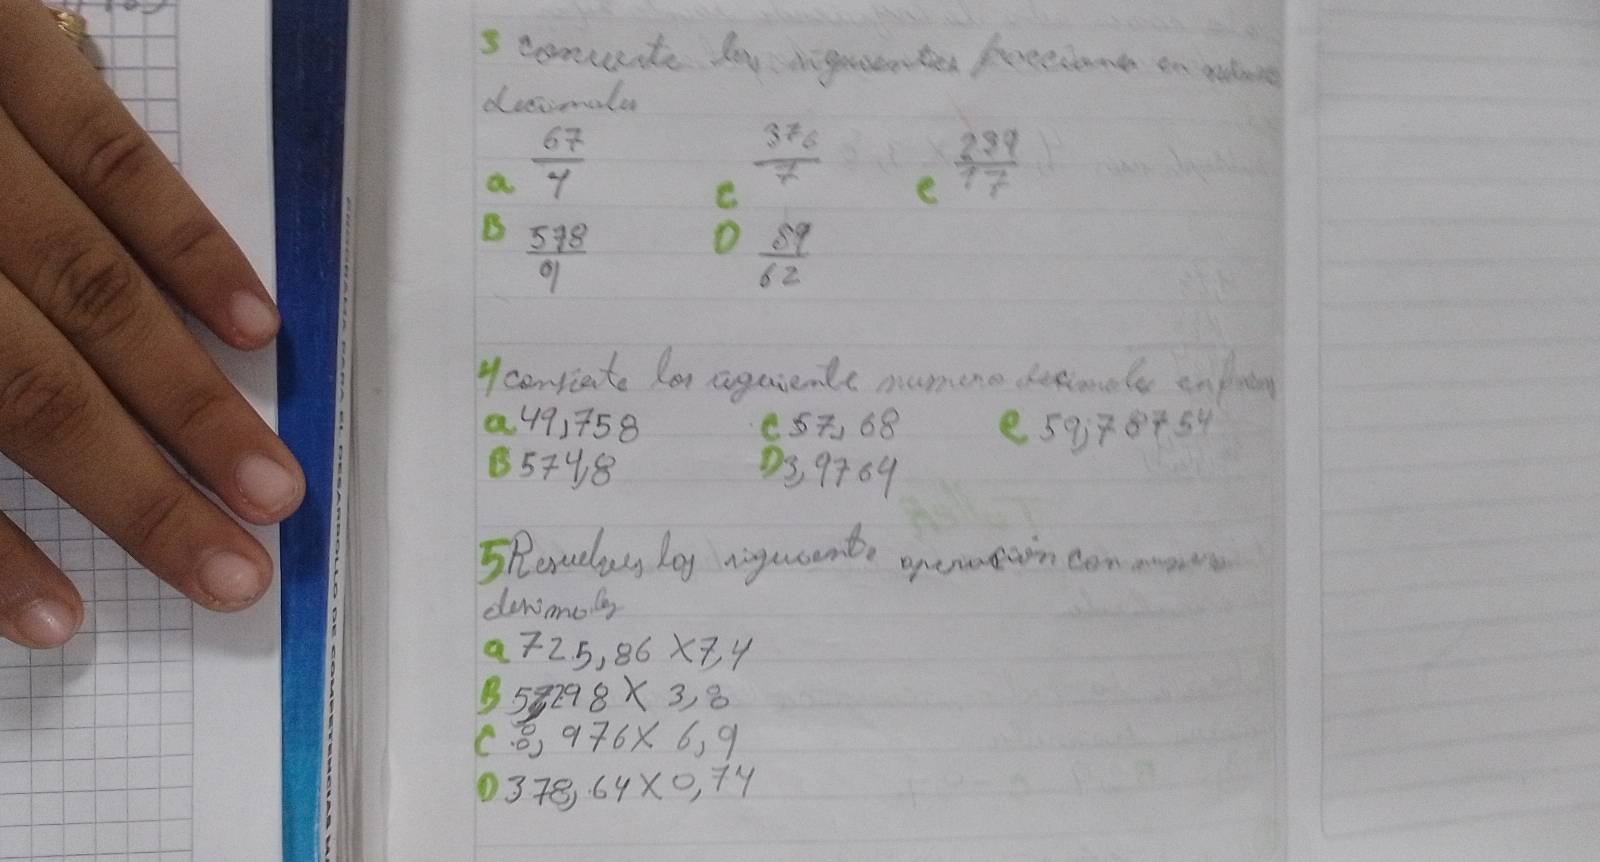 3 convierte los siguientes fracciones en numeros
decimales
a 67/4 c 376/7 e 289/17
B 578/9 D 89/62
4 conviate los siguiente numero decimales en
a 49,758 c 57,68 e 59,78754
B 574,8 D 3,9764
5 Resuelves los siguiente operación con numero
decimales
a 725,86 X 7,4
B 298 X 3,8
C 8,976 X 6,9
D 378,64 X 0,74
PARA EL DESARROLLO DE COMPETENCIAS